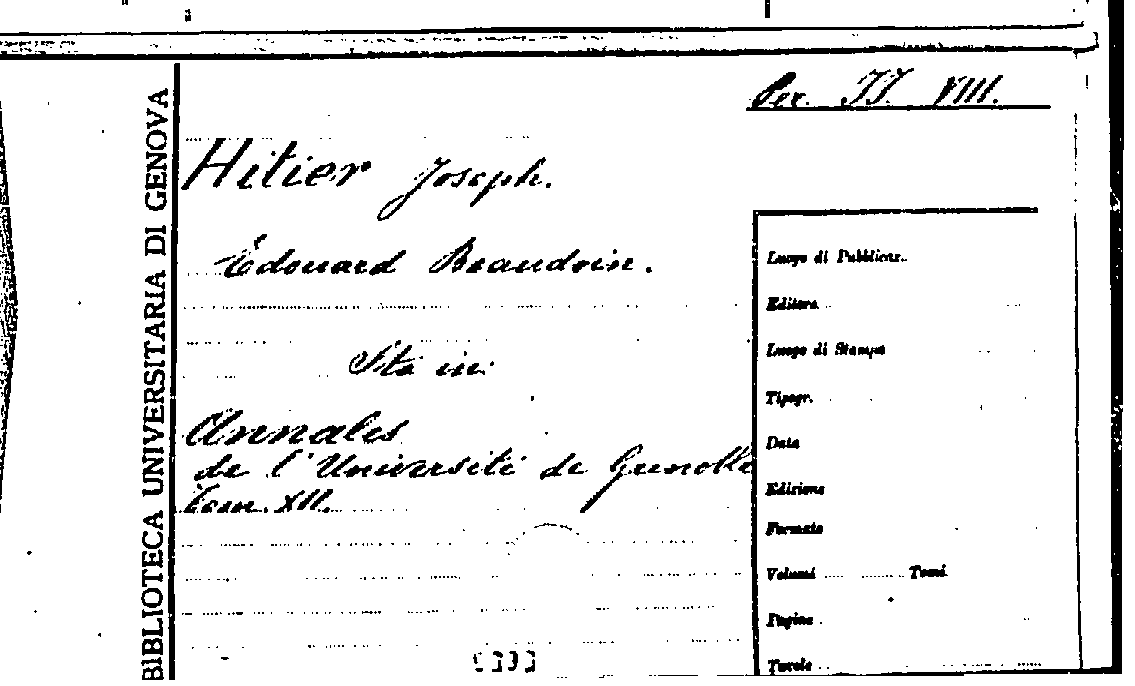 Per. JJ. VIII.
BIBLIOTECA UNIVERSITARIA DI GENOVA
Hitier Joseph.
Édouard Beaudoin.
Sta in:
Annales
de l'Université de Grenoble
Tom. XII.
Luogo di Pubblicaz.
Editore
Luogo di Stampa
Tipogr.
Data
Edizione
Formato
Volumi Tomi
Pagine
Tavole